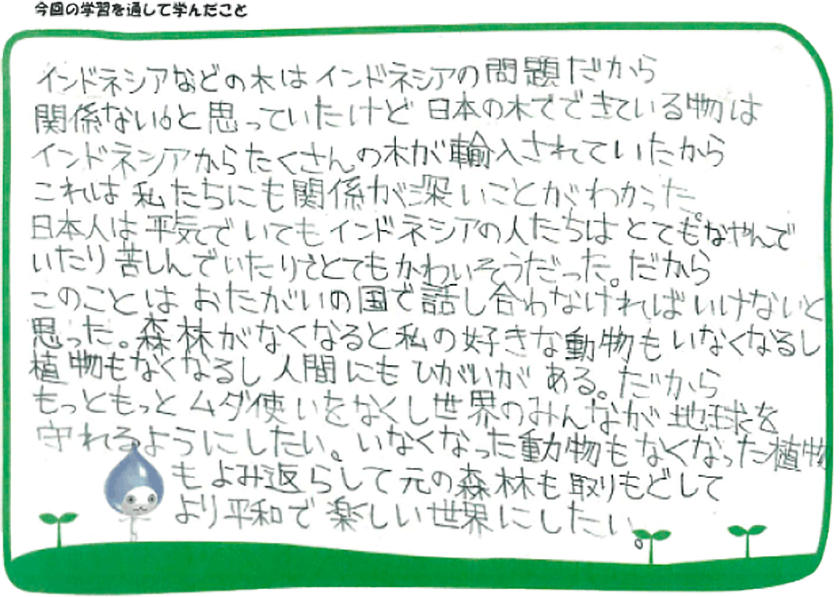 今回の学習を通して学んだこと
インドネシアなどの木はインドネシアの問題だから
関係ないと思っていたけど日本の木でできている物は
インドネシアからたくさんの木が輸入されていたから
これは私たちにも関係が深いことがわかった
日本人は平気でいてもインドネシアの人たちはとてもなやんで
いたり苦しんでいたりとてもかわいそうだった。だから
このことはおたがいの国で話し合わなければいけないと
思った。森林がなくなると私の好きな動物もいなくなるし
植物もなくなるし人間にもひがいがある。だから
もっともっとムダ使いをなくし世界のみんなが地球を
守れるようにしたい。いなくなった動物もなくなった植物
もよみ返らして元の森林も取りもどして
より平和で楽しい世界にしたい。